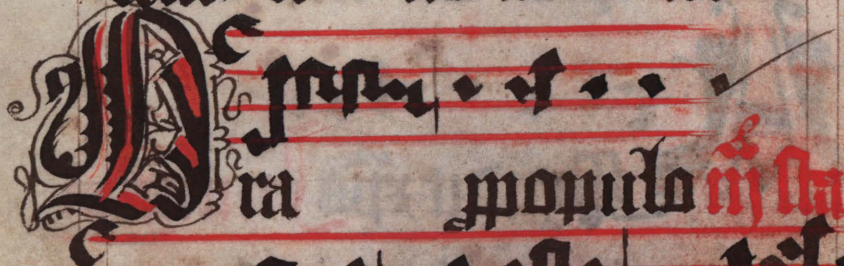 Ora ppopulo iij sta